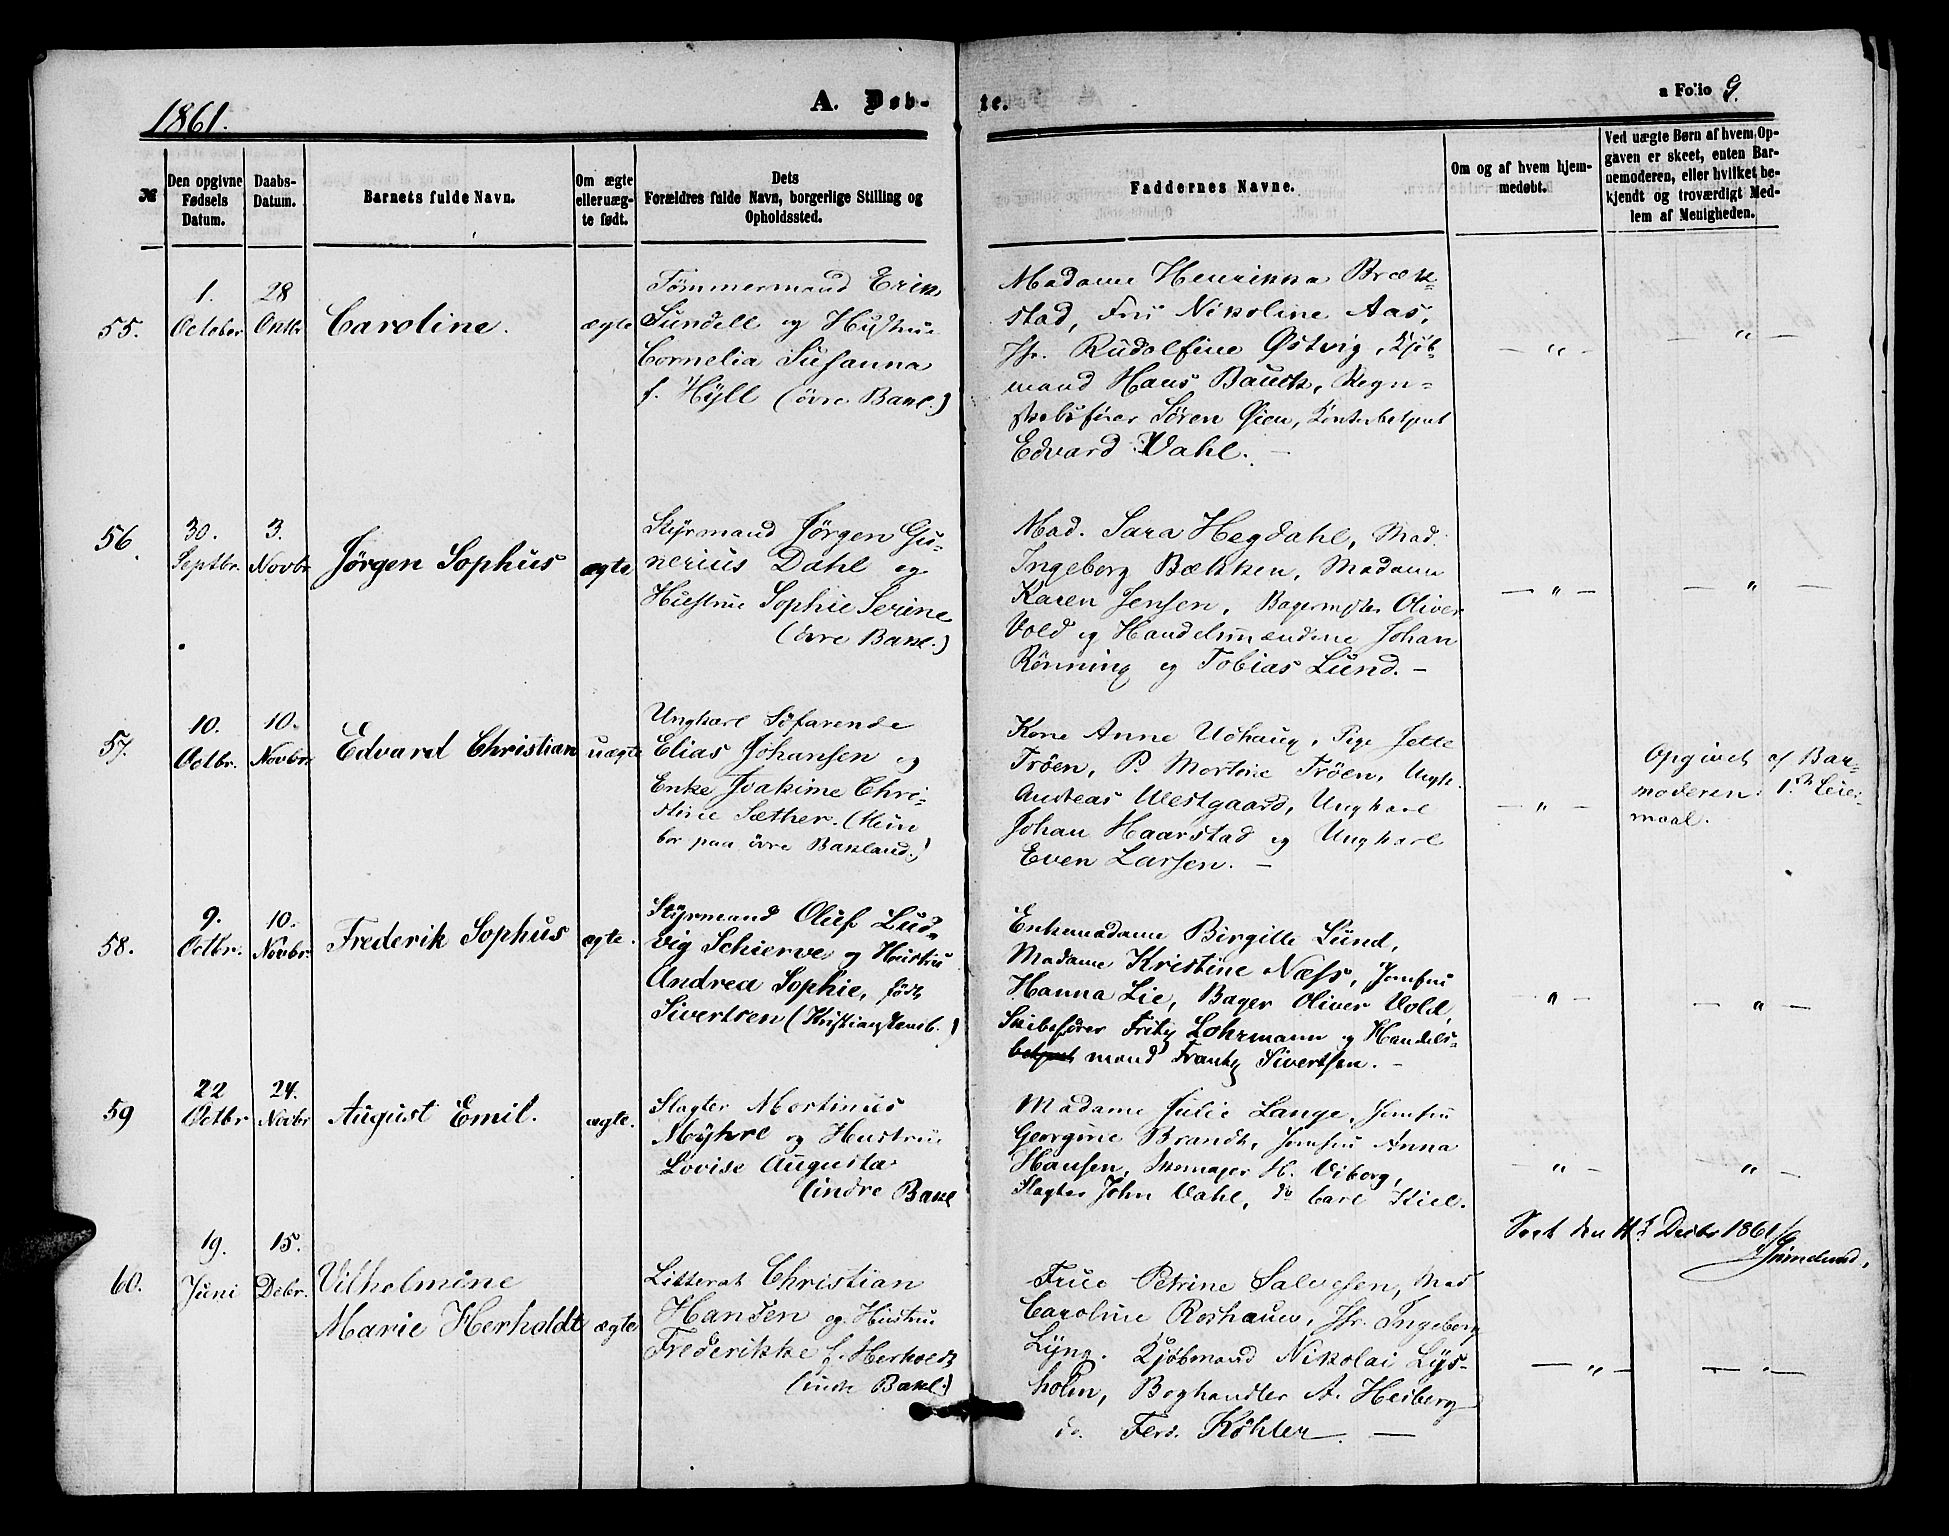 1861.
A. Døb-
te.
a Folio 9.
№
Den opgivne Fødsels Datum.
Daabs- Datum.
Barnets fulde Navn.
Om ægte eller uæg- te født.
Dets Forældres fulde Navn, borgerlige Stilling og Opholdssted.
Faddernes Navne.
Om og af hvem hjem- medøbt.
Ved uægte Børn af hvem Op- gaven er skeet, enten Bar- nemoderen, eller hvilket be- kjendt og troværdigt Med- lem af Menigheden.
55.
1. October
28 Octbr
Caroline.
ægte
Tømmermand Erik
Sundell og Hustru
Cornelia Susanna
f. Hÿll (övre Bakl.)
Madame Henrikka Bræk-
stad, Frü Nikoline Aas,
Jfr. Rudolfine Østvig, Kjöb-
mand Hans Bauck, Regn-
skabsfører Søren Øien, Kontorbetjent
Edvard Wahl. —
— " —
— " —
56.
30. Septbr.
3. Novbr
Jørgen Sophus
ægte
Styrmand Jørgen Gu-
nerius Dahl og
Hustrue Sophie Serine
(övre Bakl.)
Mad. Sara Hegdahl, Mad.
Ingeborg Bækken, Madame
Karen Jensen, Bagermester Oliver
Vold og Handelsmændene Johan
Rönning og Tobias Lund. —
— " —
— " —
57.
10. Octbr.
10. Novbr.
Edvard Christian
uægte
Ungkarl Söfarende
Elias Johansen og
Enke Joakime Chri-
stine Sæther. (Hun
bor paa övre Bakland.)
Kone Anne Udhaug, Pige Jette
Tröen, P. Martine Tröen, Ungk.
Andreas Westgaard, Ungkarl
Johan Haarstad og Ungkarl
Even Larsen. —
— " —
Opgivet af Bar-
moderen. 1ste Leier-
maal.
58.
9. Octbr.
10. Novbr.
Frederik Sophus
ægte.
Styrmand Oluf Lud-
vig Schierve og Hustru
Andrea Sophie, født
Sivertsen (Kristianstensb.)
Enkemadame Birgitte Lund,
Madame Kristine Næss, Jomfru
Hanna Lie, Bager Oliver Vold,
Skibsfører Fritz Lohrmann og Handels-
betjent mand Frantz Sivertsen. —
— " —
— " —
59
22 Octbr
24. Novbr
August Emil.
ægte.
Slagter Martinus
Mÿhre og Hustrue
Lovise Augusta
(indre Bakl
Madame Julie Lange, Jomfru
Georgine Brandt, Jomfru Anna
Hansen, Skomager H. Viborg,
Slagter John Dahl, do Carl Kiel.
— " —
— " —
Seet den 11te Decbr 1861
60.
19. Juni
15. Debr.
Vilhelmine
Marie Herholdt
ægte
Litterat Christian
Hansen og Hustru
Frederikke f. Herholdt
(indre Bakl.)
Frue Petrine Salvesen, Mad
Caroline Roshauw, Jfr. Ingeborg
Lÿng. Kjöbmand Nikolai Lÿs-
holm, Boghandler A. Heiberg
do. Ferd. Köhler. —
— " —
— " —